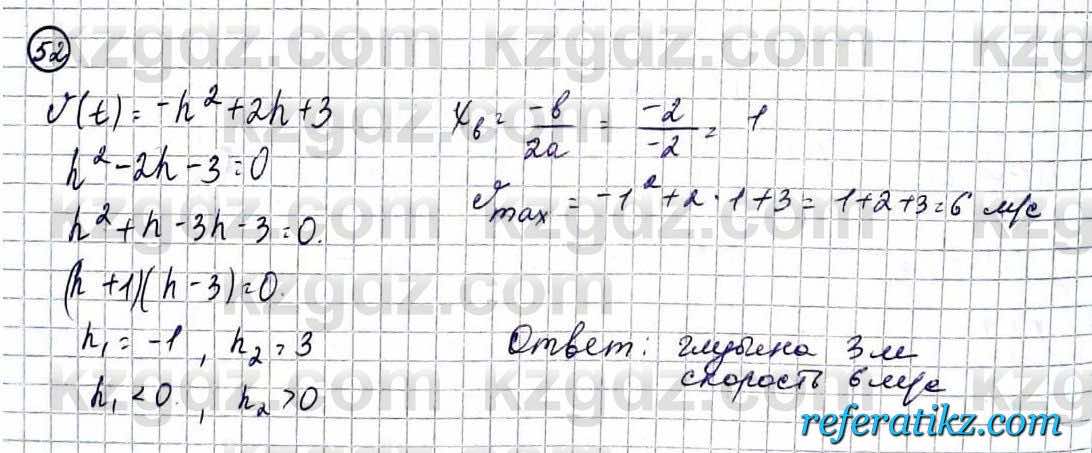 52
v(t) = -h² + 2h + 3
h² - 2h - 3 = 0
h² + h - 3h - 3 = 0.
(h + 1)(h - 3) = 0.
h₁ = -1, h₂ = 3
h₁ < 0, h₂ > 0
x_в = -b/2a = -2/-2 = 1
v_max = -1² + 2 · 1 + 3 = 1 + 2 + 3 = 6 м/с
Ответ: глубина 3 м
скорость 6 м/с
kzgdz.com kzgdz.com kzgdz.com
referatikz.com